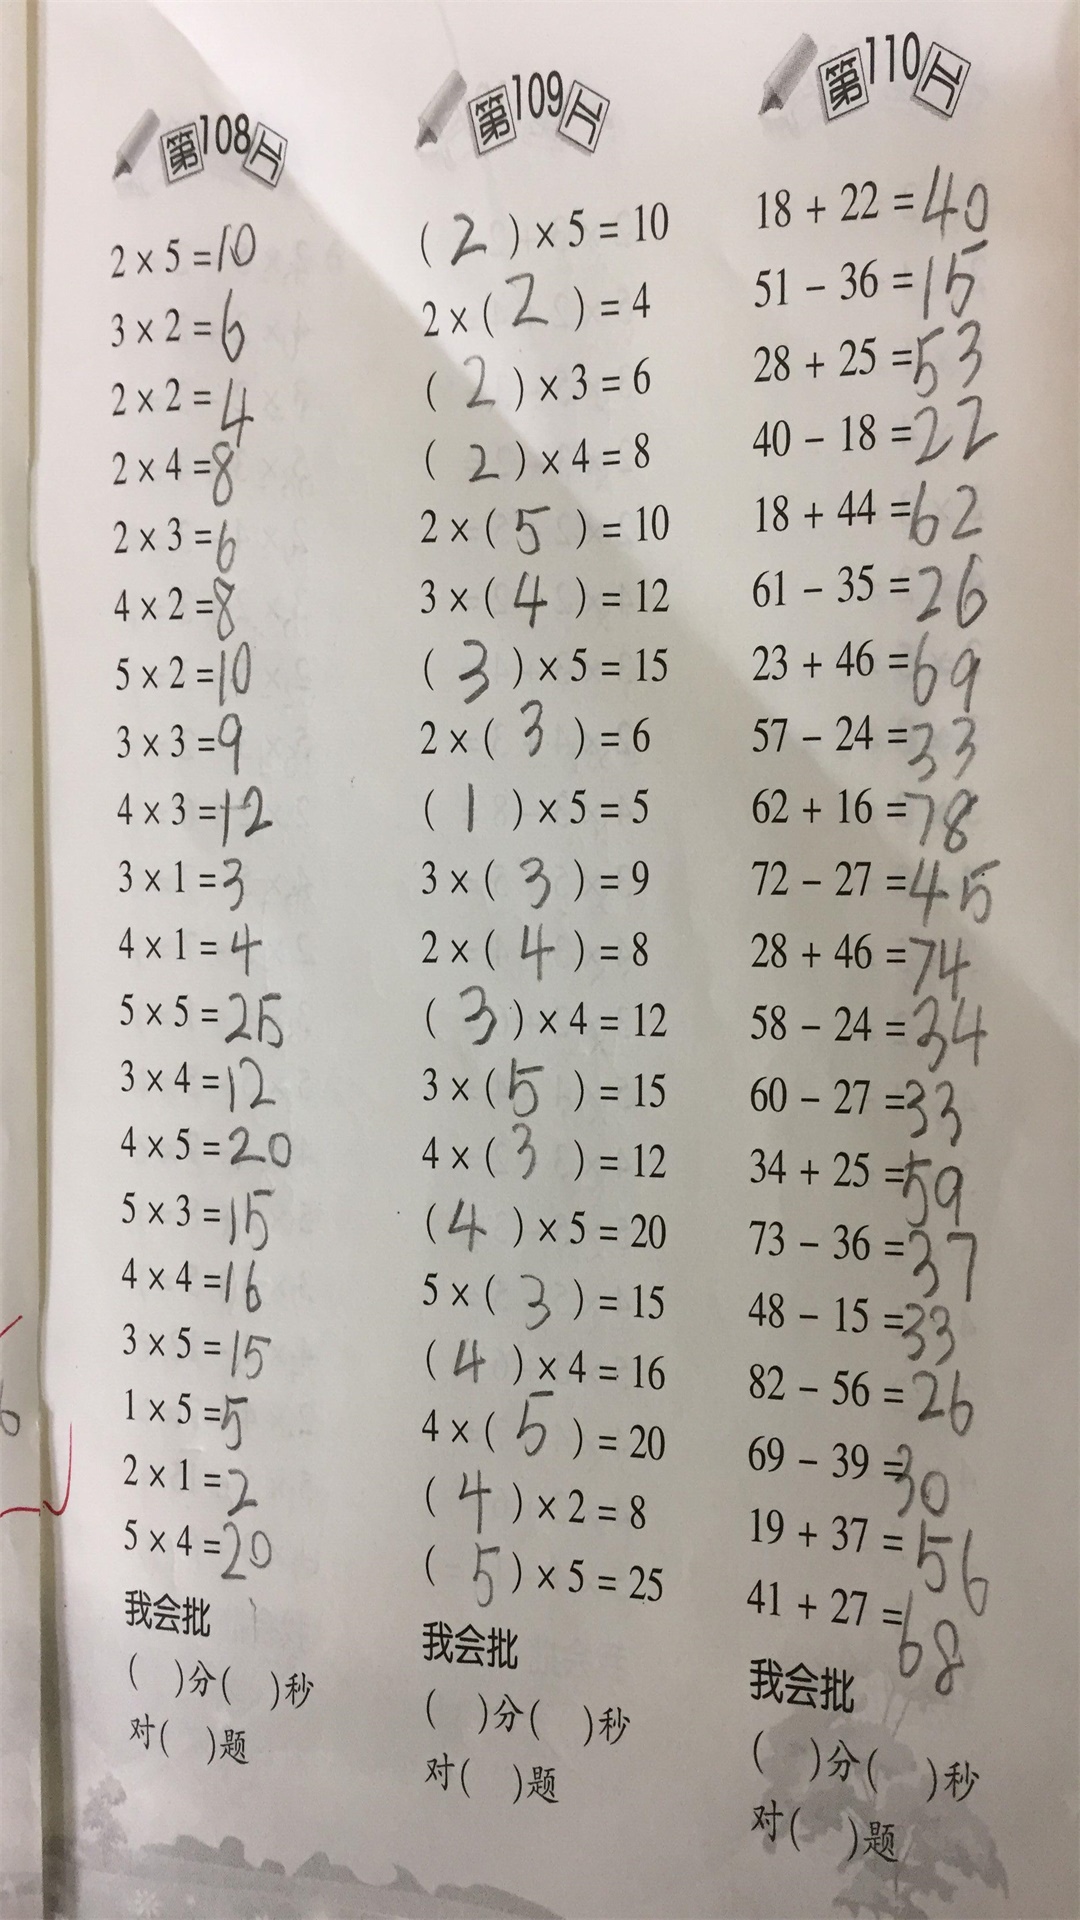 第108工
2 × 5 = 10
3 × 2 = 6
2 × 2 = 4
2 × 4 = 8
2 × 3 = 6
4 × 2 = 8
5 × 2 = 10
3 × 3 = 9
4 × 3 = 12
3 × 1 = 3
4 × 1 = 4
5 × 5 = 25
3 × 4 = 12
4 × 5 = 20
5 × 3 = 15
4 × 4 = 16
3 × 5 = 15
1 × 5 = 5
2 × 1 = 2
5 × 4 = 20
我会批
( )分( )秒
对( )题
第109工
( 2 ) × 5 = 10
2 × ( 2 ) = 4
( 2 ) × 3 = 6
( 2 ) × 4 = 8
2 × ( 5 ) = 10
3 × ( 4 ) = 12
( 3 ) × 5 = 15
2 × ( 3 ) = 6
( 1 ) × 5 = 5
3 × ( 3 ) = 9
2 × ( 4 ) = 8
( 3 ) × 4 = 12
3 × ( 5 ) = 15
4 × ( 3 ) = 12
( 4 ) × 5 = 20
5 × ( 3 ) = 15
( 4 ) × 4 = 16
4 × ( 5 ) = 20
( 4 ) × 2 = 8
( 5 ) × 5 = 25
我会批
( )分( )秒
对( )题
第110工
18 + 22 = 40
51 − 36 = 15
28 + 25 = 53
40 − 18 = 22
18 + 44 = 62
61 − 35 = 26
23 + 46 = 69
57 − 24 = 33
62 + 16 = 78
72 − 27 = 45
28 + 46 = 74
58 − 24 = 34
60 − 27 = 33
34 + 25 = 59
73 − 36 = 37
48 − 15 = 33
82 − 56 = 26
69 − 39 = 30
19 + 37 = 56
41 + 27 = 68
我会批
( )分( )秒
对( )题